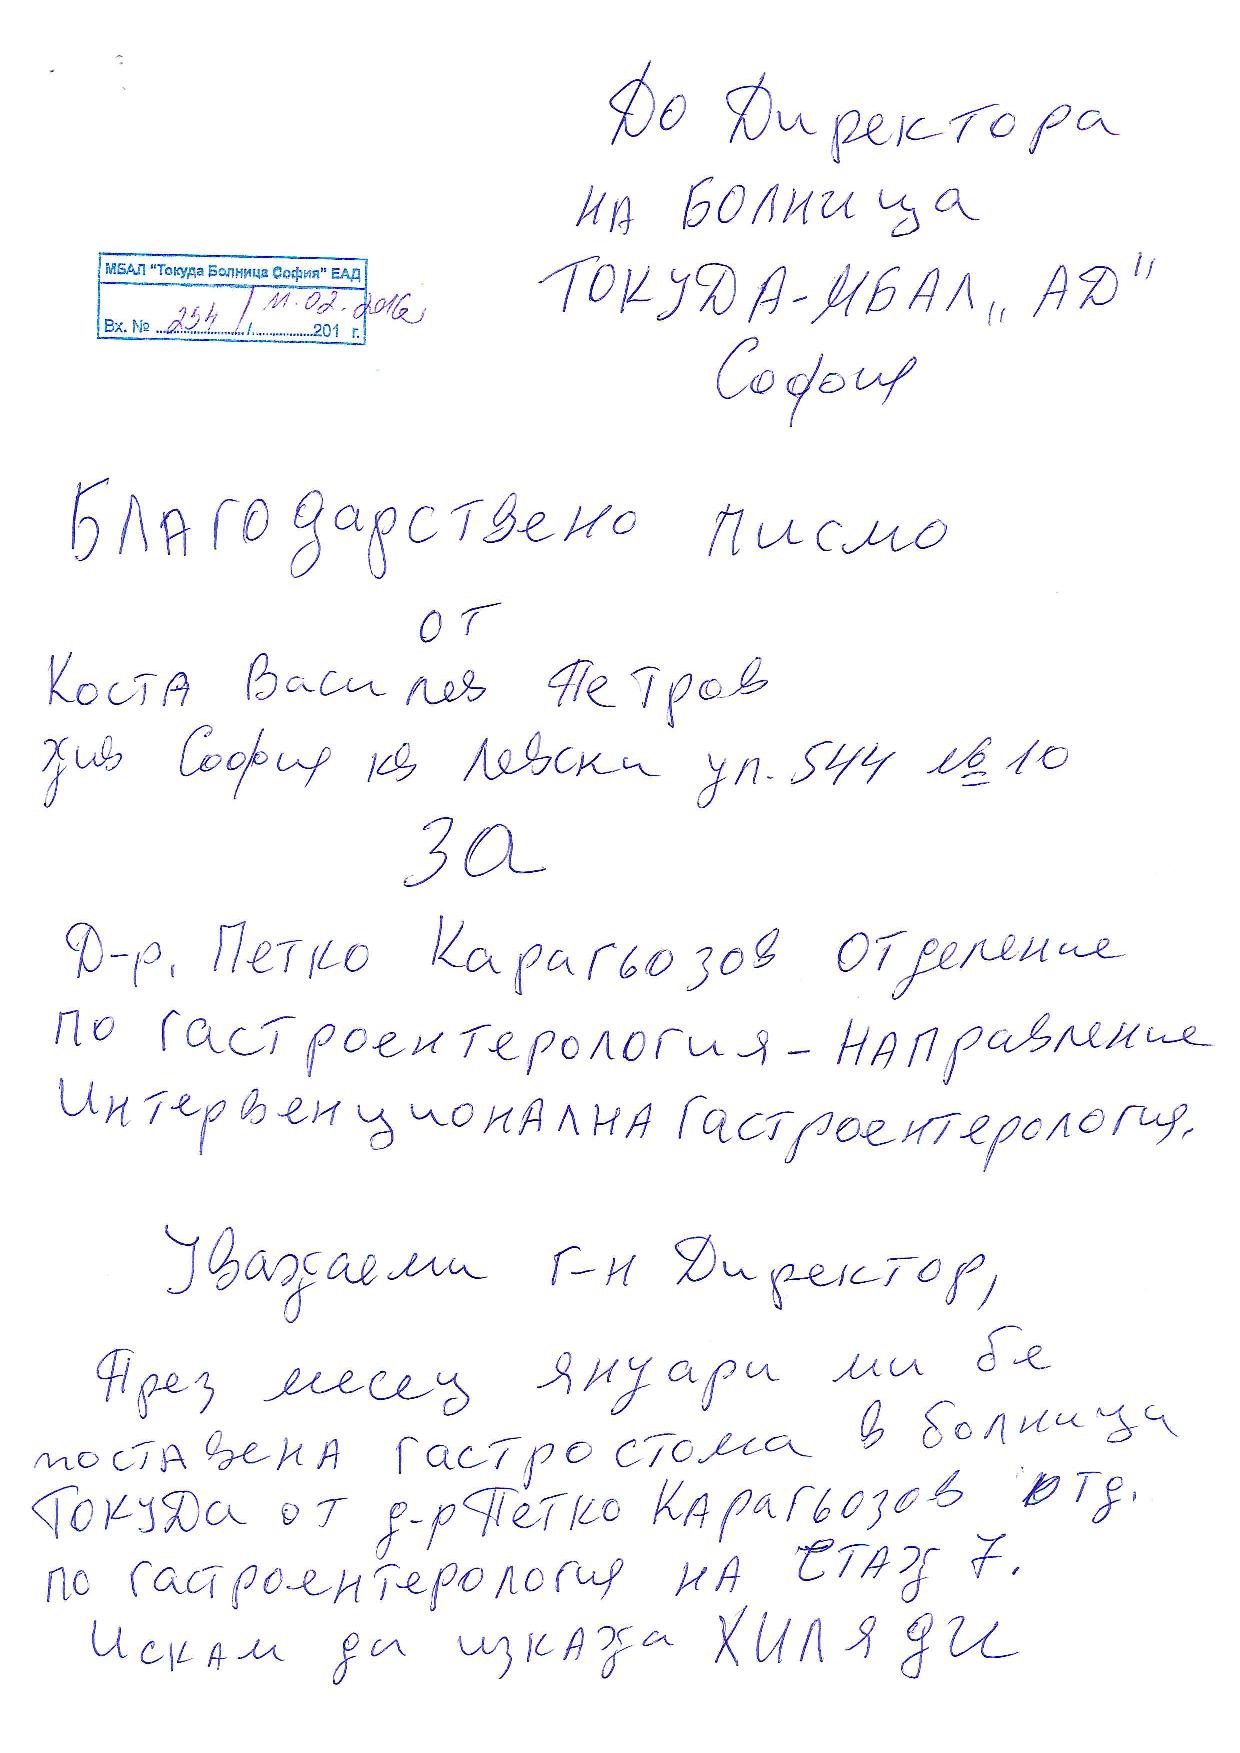 До Директора
на Болница
ТОКУДА-МБАЛ „АД"
София
МБАЛ "Токуда Болница София" ЕАД
Вх. № 254 / 11.02.2016 201 г.
Благодарствено писмо
от
Коста Василев Петров
жив София кв Левски ул. 544 № 10
За
Д-р. Петко Карагьозов отделение
по гастроентерология - направление
Интервенционална гастроентерология.
Уважаеми г-н Директор,
През месец януари ми бе
поставена гастростома в болница
ТОКУДа от д-р Петко Карагьозов отд.
по гастроентерология на етаж 7.
Искам да изкажа ХИЛЯДИ